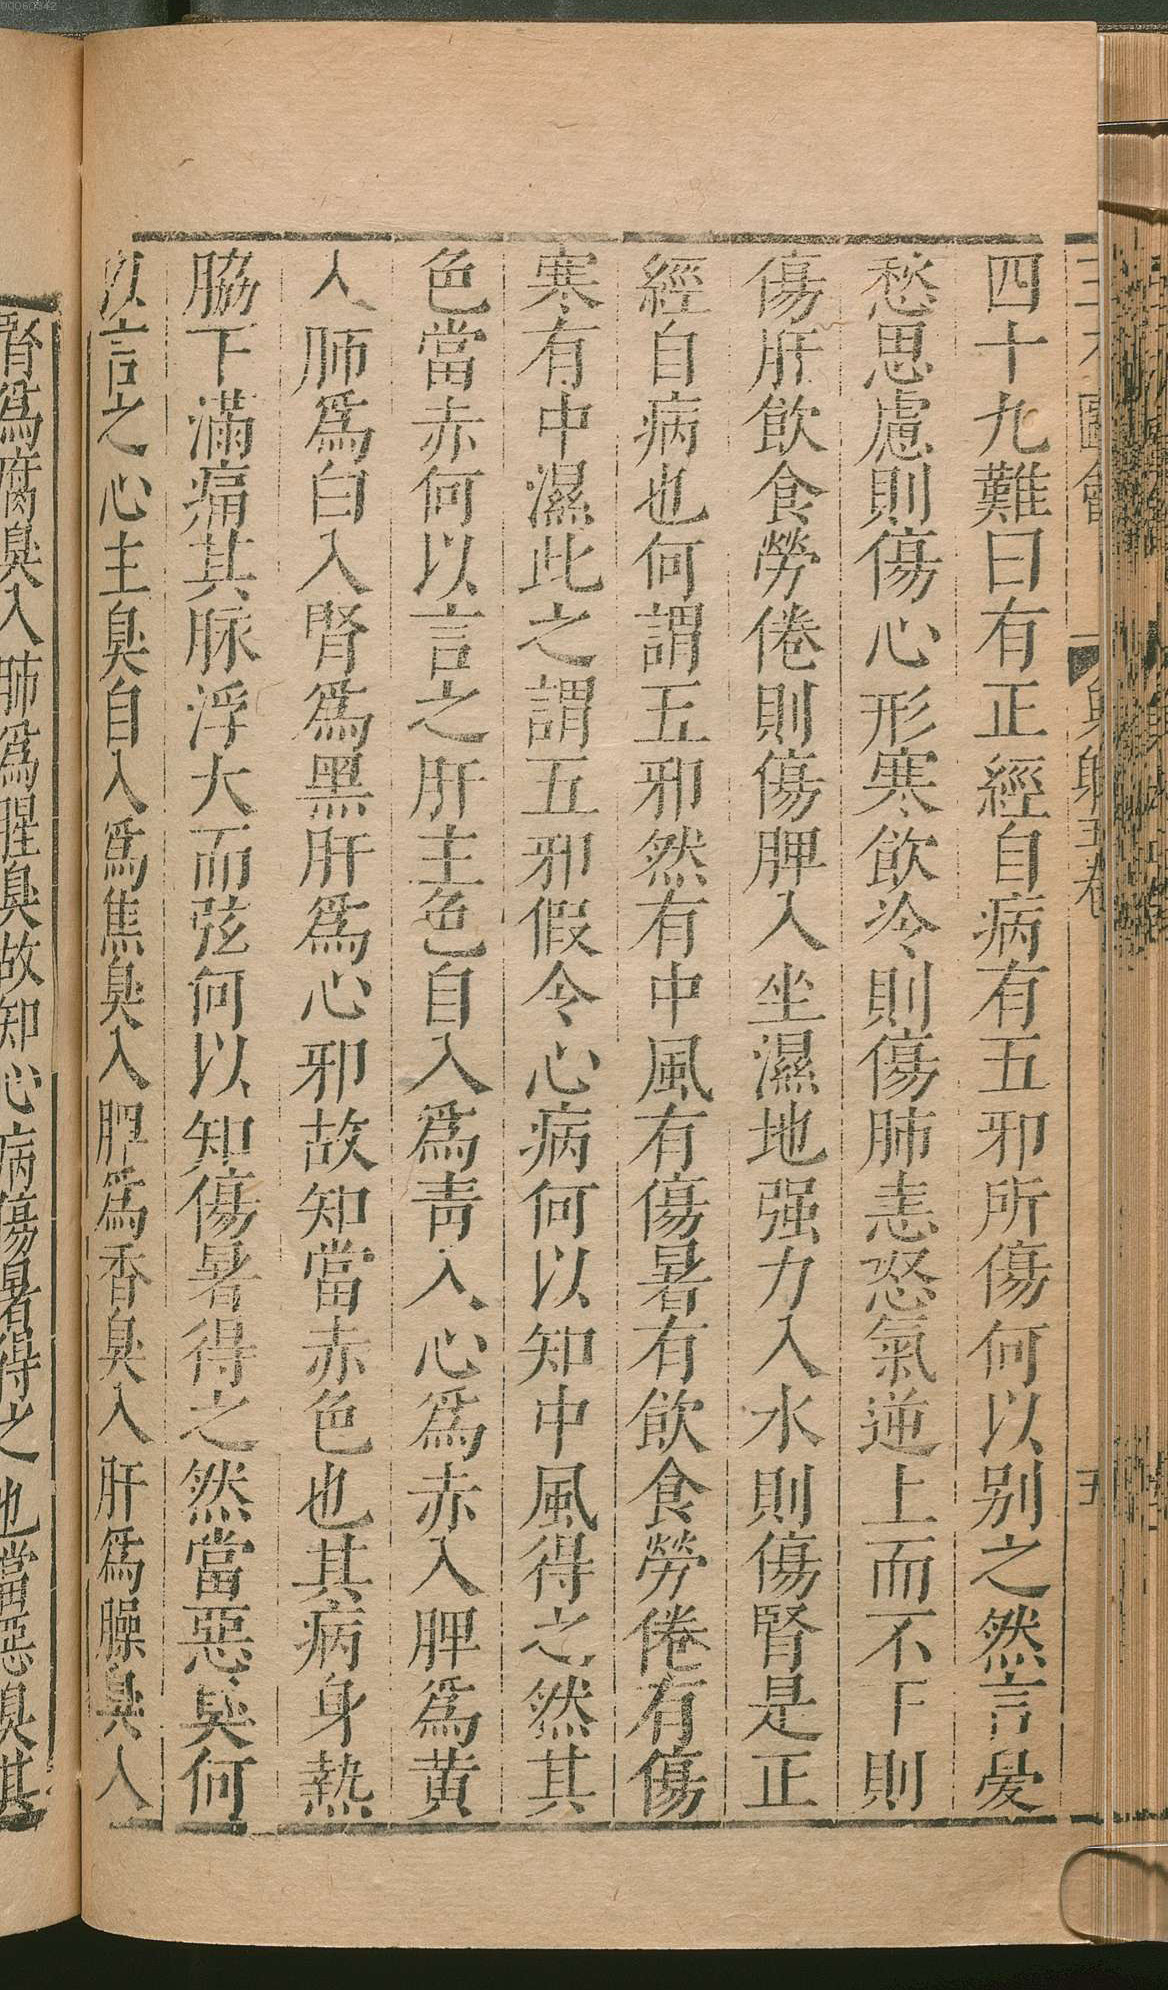 四十九難曰有正經自病有五邪所傷何以别之然言憂
愁思慮則傷心形寒飲冷則傷肺恚怒氣逆上而不下則
傷肝飲食勞倦則傷脾入坐濕地强力入水則傷腎是正
經自病也何謂五邪然有中風有傷暑有飲食勞倦有傷
寒有中濕此之謂五邪假令心病何以知中風得之然其
色當赤何以言之肝主色自入爲青入心爲赤入脾爲黄
入肺爲白入腎爲黑肝爲心邪故知當赤色也其病身熱
脇下滿痛其脉浮大而弦何以知傷暑得之然當惡臭何
以言之心主臭自入爲焦臭入脾爲香臭入肝爲臊臭入
腎爲腐臭入肺爲腥臭故知心病傷暑得之也當惡臭其
00060342